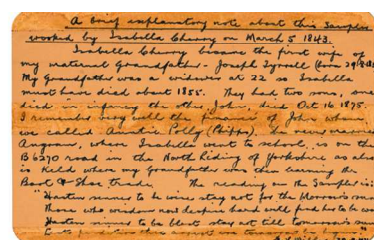 A brief explanatory note about this Sampler
worked by Isabella Cherry on March 5 1843.
Isabella Cherry became the first wife of
my maternal grandfather - Joseph Tyrrell (born
My grandfather was a widower at 22 so Isabella
must have died about 1855. They had two sons, one
died in infancy the other, John, died Oct 16, 1875.
I remember very well the fiancée of John whom
we called Auntie Polly (Phipps). She never married
where Isabella went to school, is on the
B6270 road in the North Riding of Yorkshire as also
is Keld where my grandfather was then learning the
Boot & Shoe trade. The reading on the Sampler is:
"Hasten sinner to be wise stay not for the morrow's sun
Those who wisdom now despise hard will find her to be won
Hasten sinner to be blest stay not till tomorrow's sun